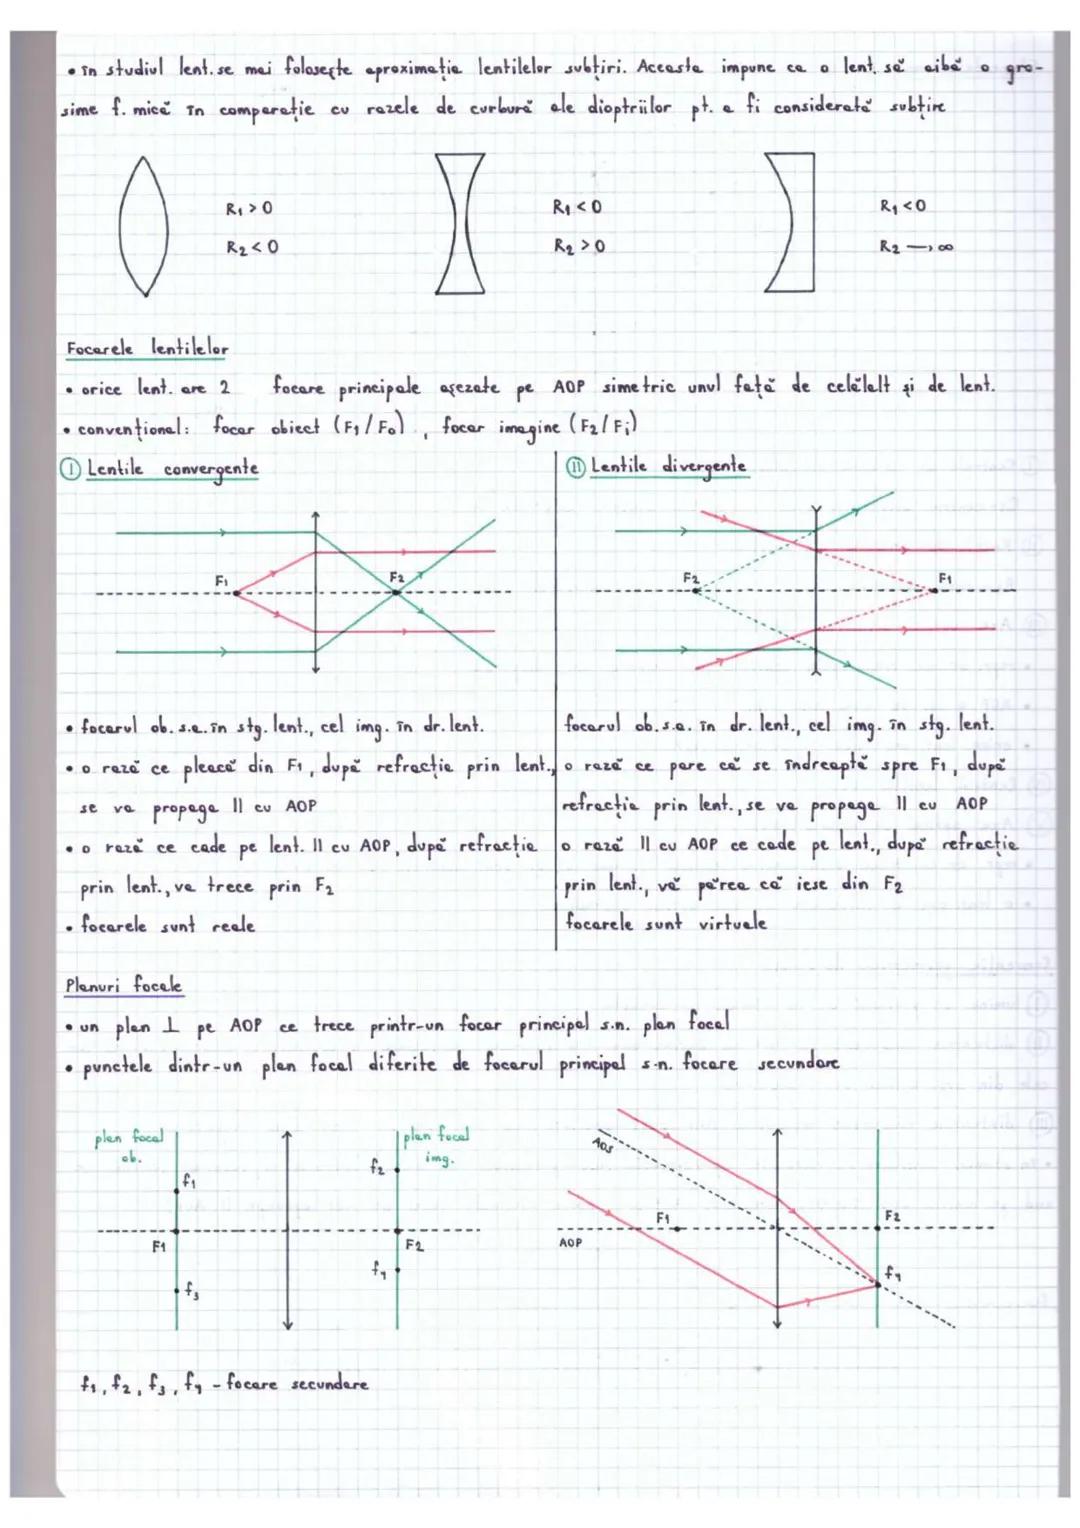 • în studiul lent. se mai folosește aproximația lentilelor subțiri. Aceasta impune ca o lent. să aibă o gro-
sime f. mică în comparație cu razele de curbură ale dioptriilor pt. a fi considerată subțire
R₁ > 0
R₂ < 0
R₁ < 0
R₂ > 0
R₁ < 0
R₂ → ∞
Focarele lentilelor
• orice lent. are 2 focare principale așezate pe AOP simetric unul față de celălalt și de lent.
• convențional: focar obiect (F₁/F₀), focar imagine (F₂/Fᵢ)
Ⓘ Lentile convergente
F₁
F₂
• focarul ob. s.a. în stg. lent., cel img. în dr. lent.
• o rază ce pleacă din F₁, după refracție prin lent.,
se va propaga || cu AOP
• o rază ce cade pe lent. || cu AOP, după refracție
prin lent., va trece prin F₂
• focarele sunt reale
Ⓘ Lentile divergente
F₂
F₁
focarul ob. s.a. în dr. lent., cel img. în stg. lent.
o rază ce pare că se îndreaptă spre F₁, după
refracție prin lent., se va propaga || cu AOP
o rază || cu AOP ce cade pe lent., după refracție
prin lent., vă părea că iese din F₂
focarele sunt virtuale
Planuri focale
• un plan ⊥ pe AOP ce trece printr-un focar principal s.n. plan focal
• punctele dintr-un plan focal diferite de focarul principal s.n. focare secundare
plan focal
ob.
f₁
F₁
f₃
plan focal
img.
f₂
F₂
f₄
AOS
F₁
F₂
AOP
f₄
f₁, f₂, f₃, f₄ - focare secundare